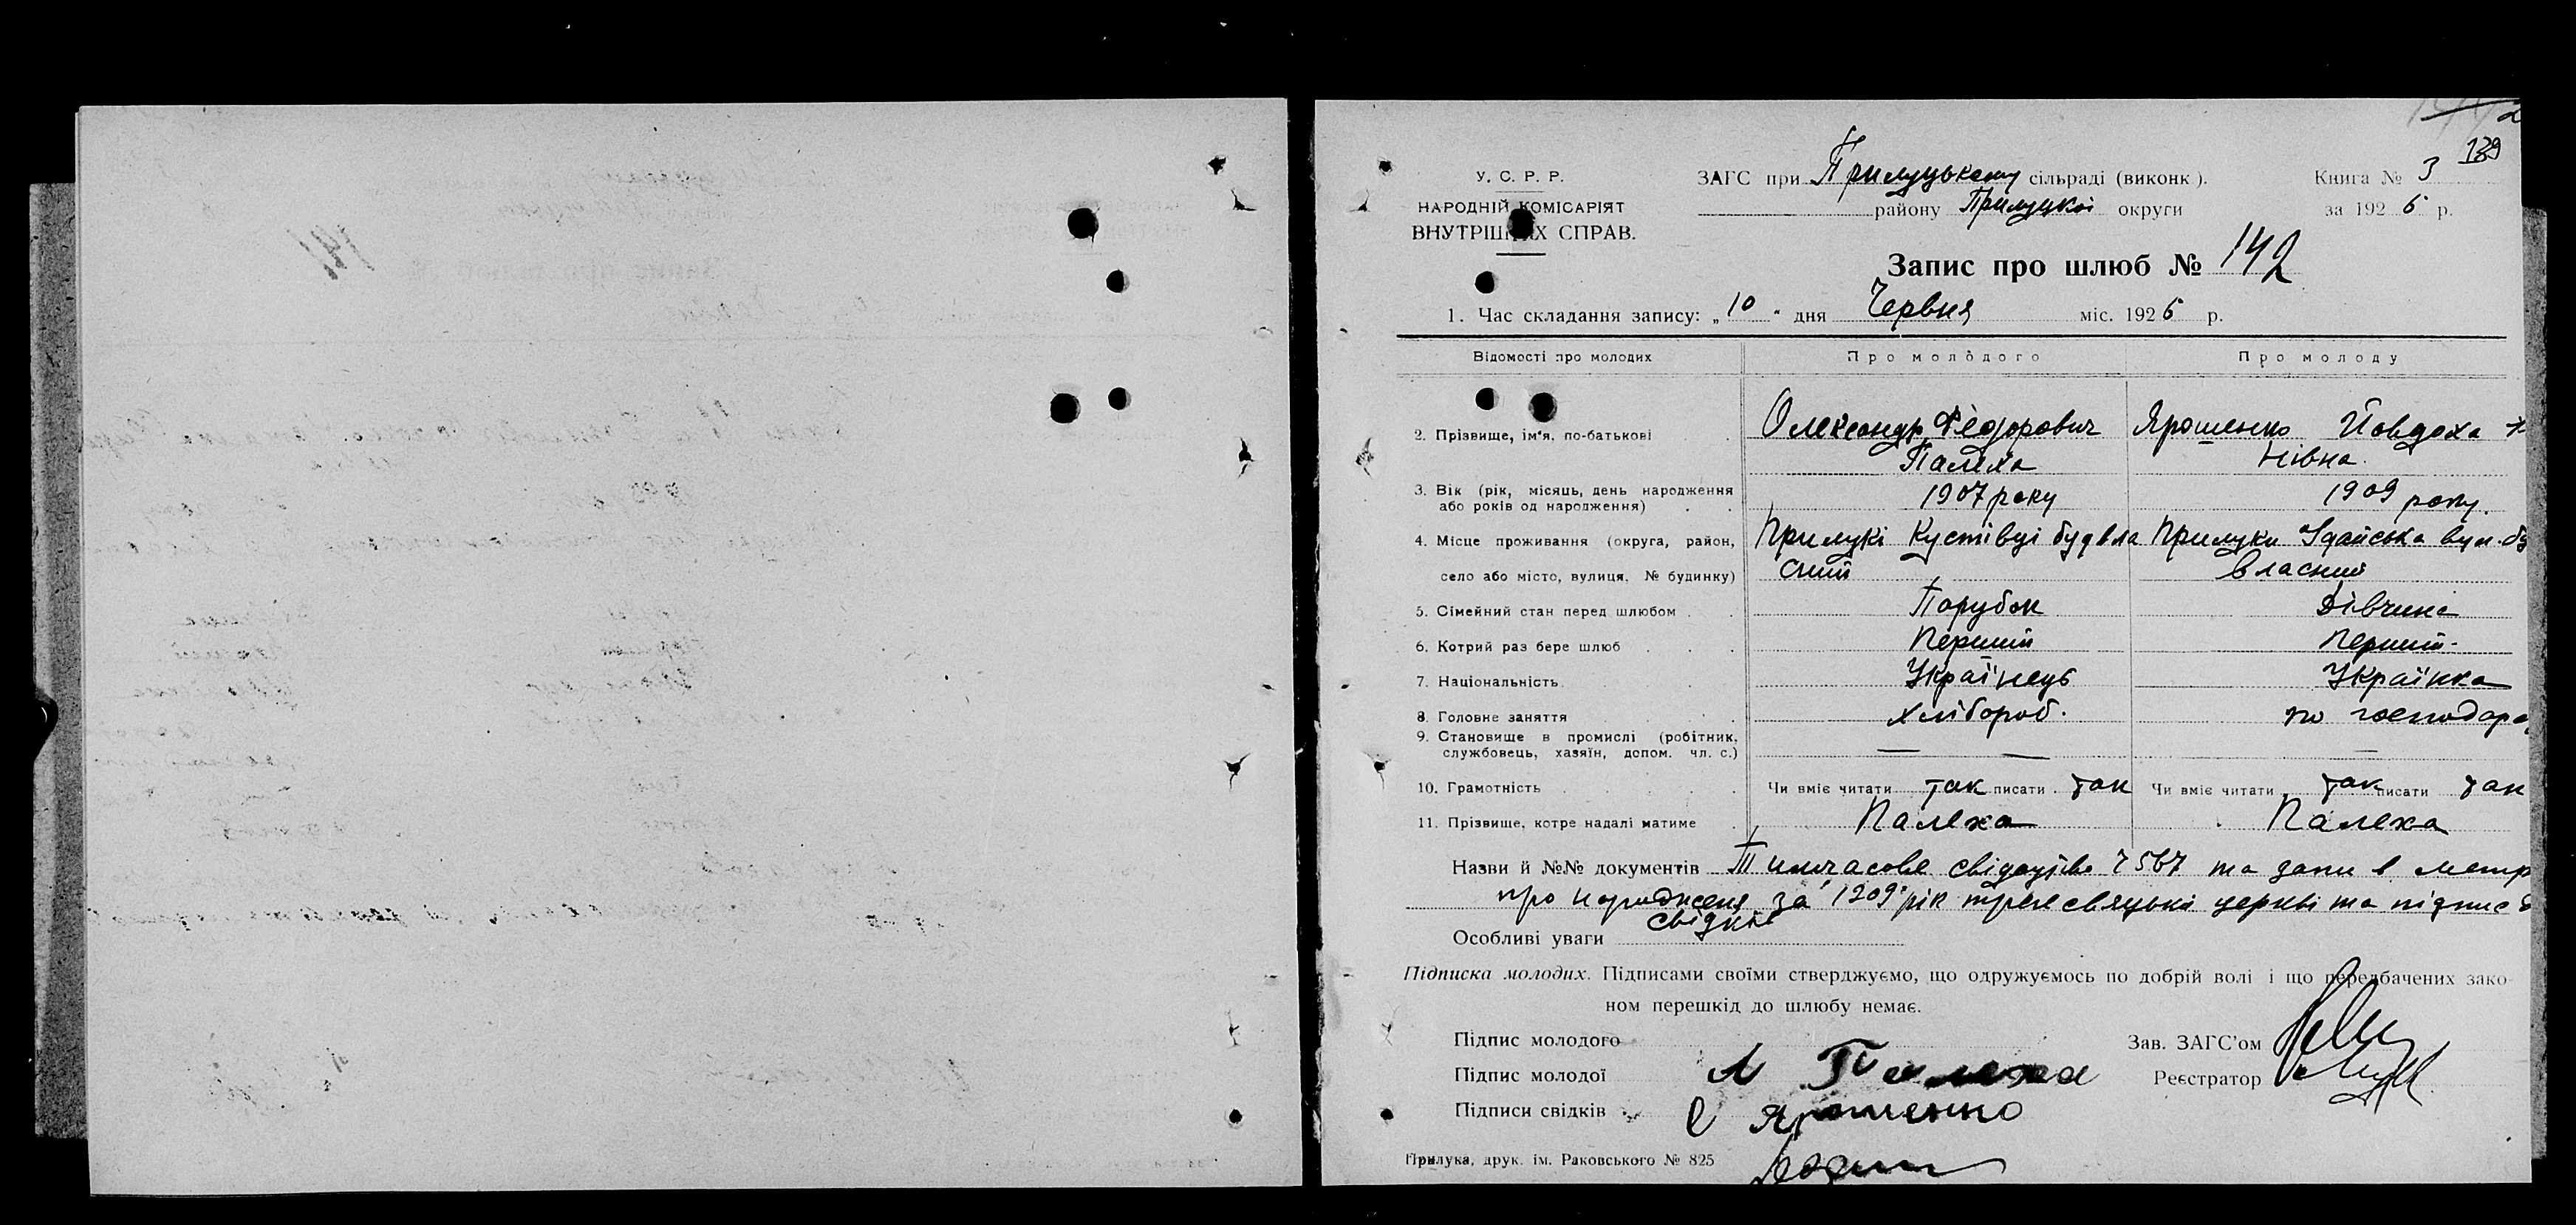 139
У. С. Р. Р.
НАРОДНІЙ КОМІСАРІЯТ
ВНУТРІШНІХ СПРАВ.
ЗАГС при Прилуцькому сільраді (виконк).
району Прилуцкої округи
Книга № 3
за 1926 р.
Запис про шлюб № 142
1. Час складання запису: „10" дня Червня міс. 1926 р.
Відомості про молодих
Про молодого
Про молоду
2. Прізвище, ім'я, по-батькові
Олександр Федорович
Палеха
Ярошенко Йовдоха
нівна
3. Вік (рік, місяць, день народження
або років од народження)
1907 року
1909 року.
4. Місце проживання (округа, район,
село або місто, вулиця, № будинку)
Прилукі Кустівці буд вла
сний
Прилуки Удайська вул. бу
власний
5. Сімейний стан перед шлюбом
Парубок
Дівчина
6. Котрий раз бере шлюб
Перший
Перший
7. Національність
Українець
Українка
8. Головне заняття
хлібороб.
по господар
9. Становище в промислі (робітник,
службовець, хазяїн, допом. чл. с.)
10. Грамотність
Чи вміє читати так писати так
Чи вміє читати так писати так
11. Прізвище, котре надалі матиме
Палеха
Палеха
Назви й №№ документів Тимчасове свідоцтво 7567 та запис в метр
про народженя за 1909 рік трьохсвяцькі церкві та підпис
свідків
Особливі уваги
Підписка молодих. Підписами своїми стверджуємо, що одружуємось по добрій волі і що передбачених зако-
ном перешкід до шлюбу немає.
Підпис молодого
Підпис молодої
Палеха
Підписи свідків
Ярошенко
Зав. ЗАГС'ом
Реєстратор
Прилука, друк. ім. Раковського № 825